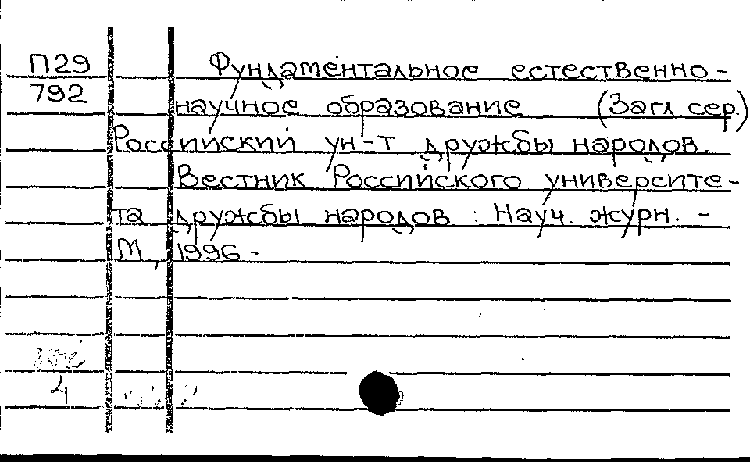 П29 Фундаментальное естественно-
792 научное образование (Загл сер.)
Российский ун-т дружбы народов.
Вестник Российского университе-
та дружбы народов : Науч. журн. -
М, 1996 -
4